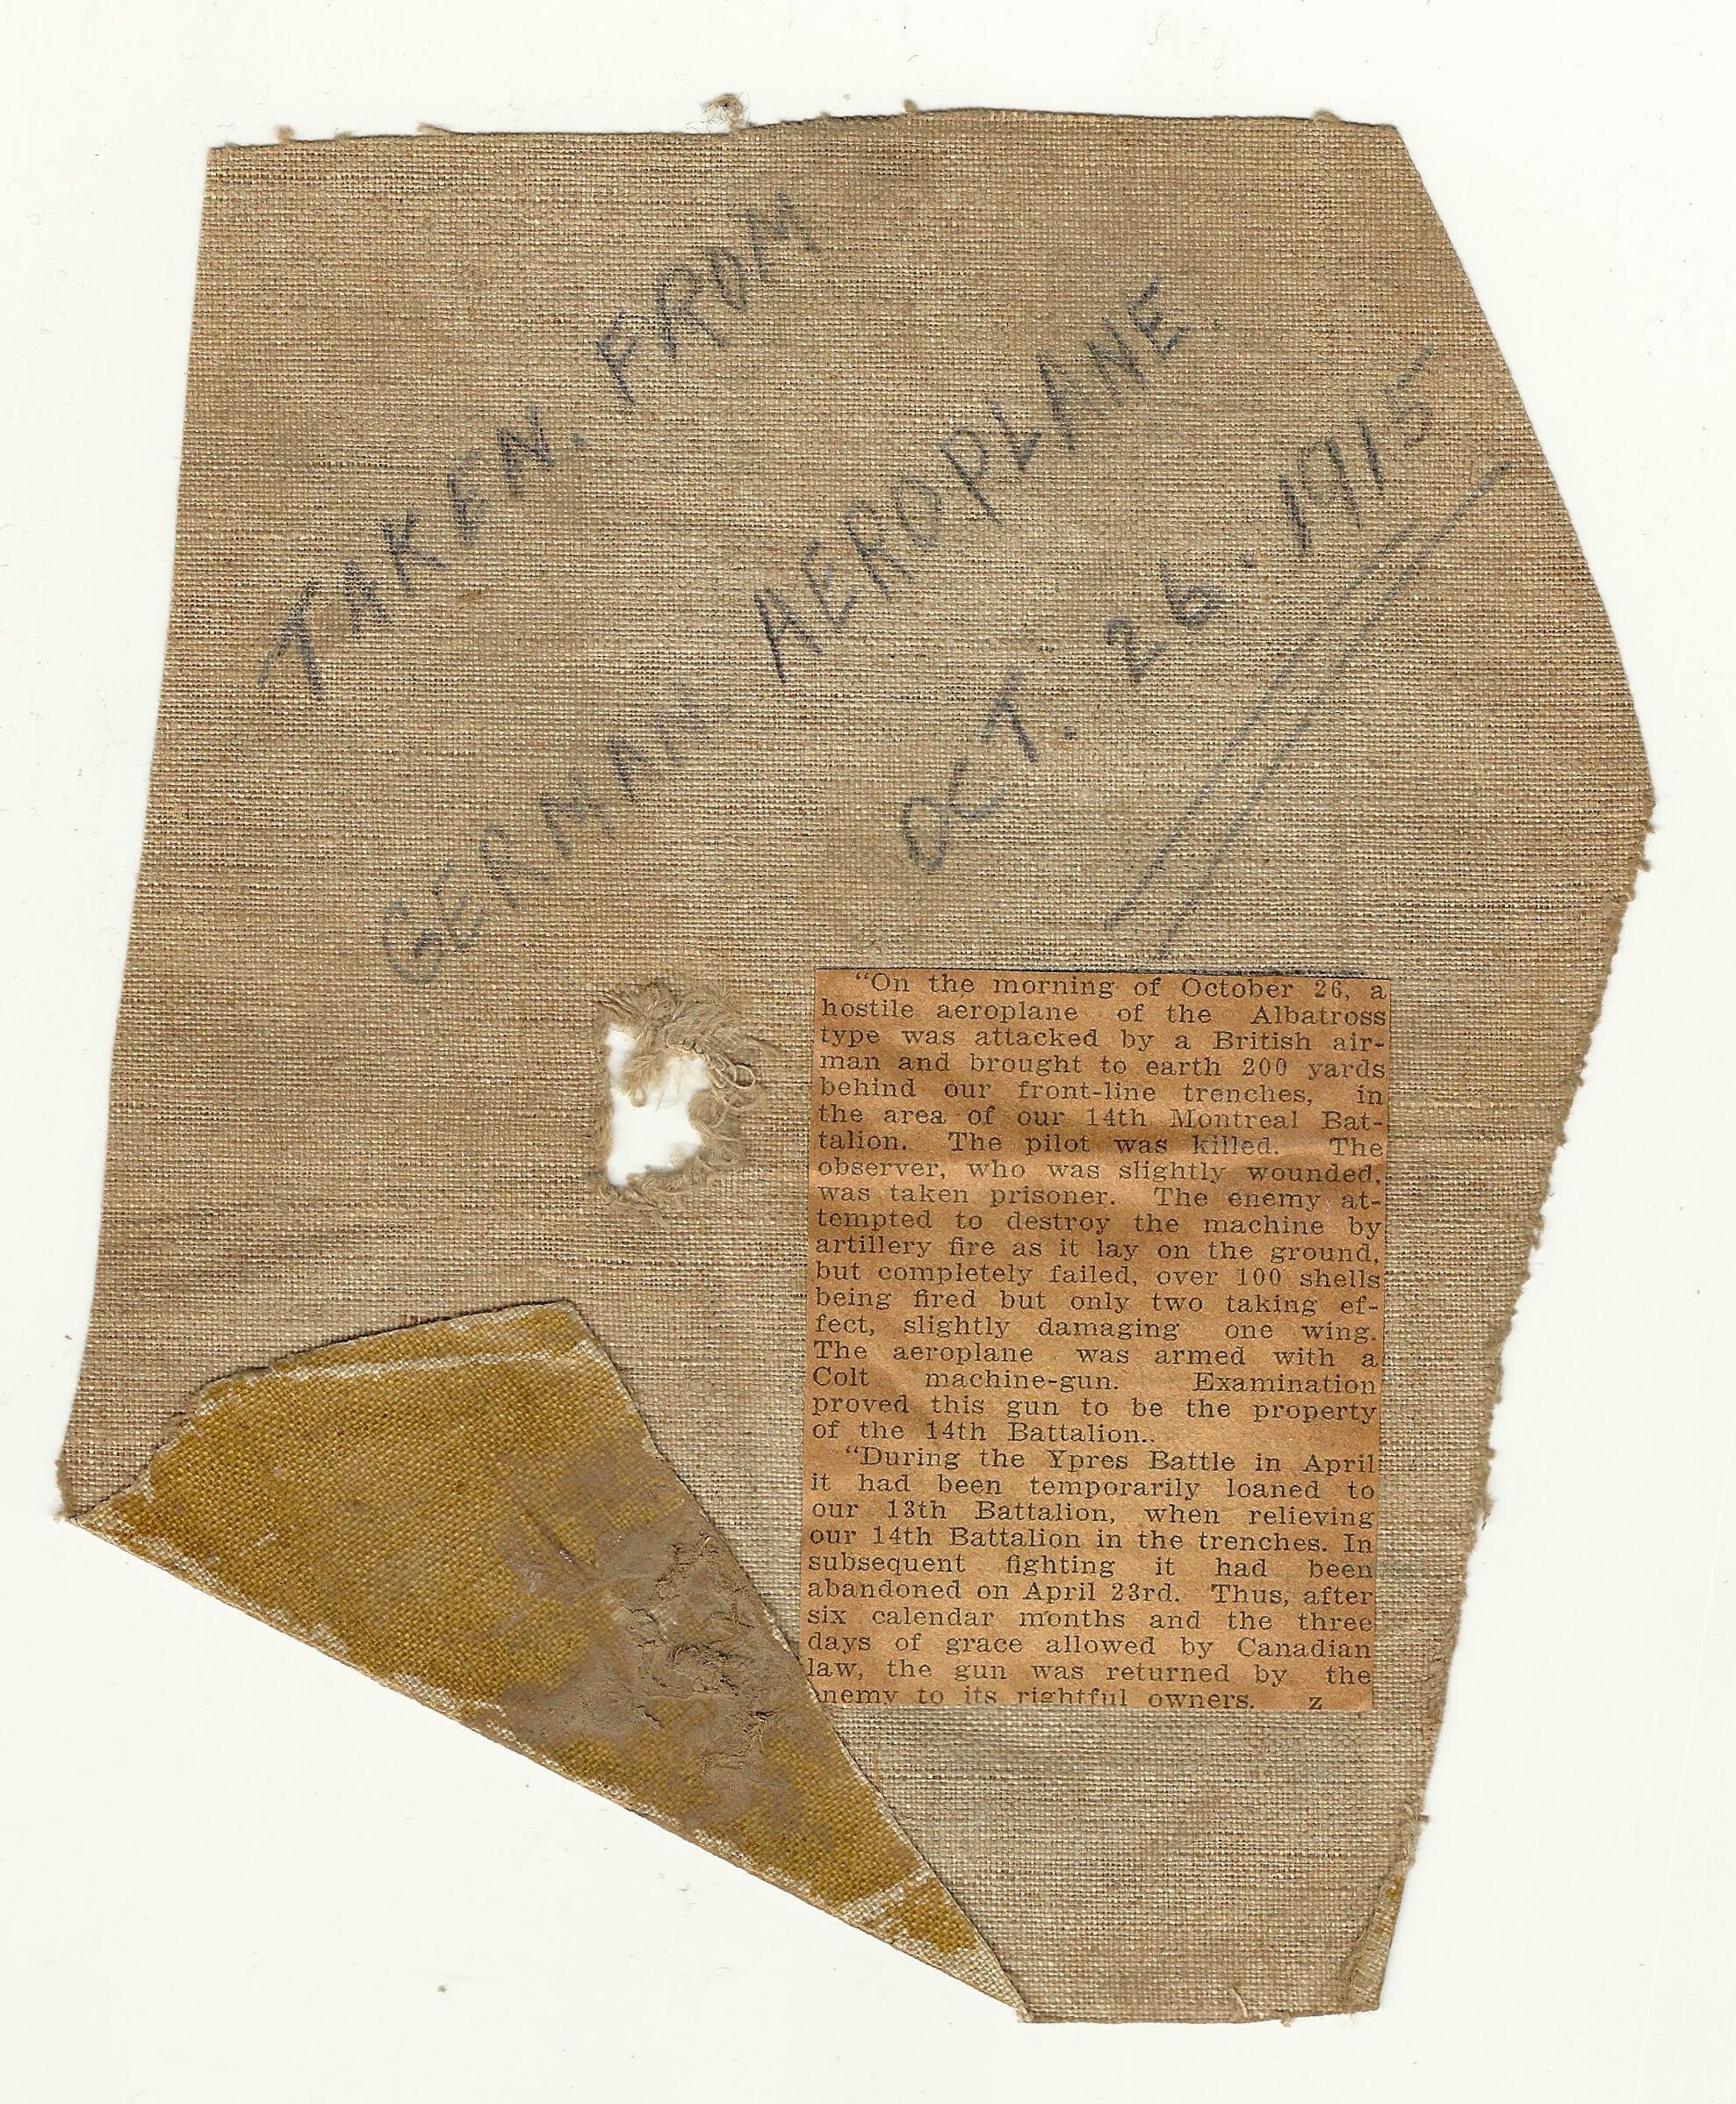 TAKEN. FROM
GERMAN AEROPLANE.
OCT. 26. 1915
“On the morning of October 26, a
hostile aeroplane of the Albatross
type was attacked by a British air-
man and brought to earth 200 yards
behind our front-line trenches, in
the area of our 14th Montreal Bat-
talion. The pilot was killed. The
observer, who was slightly wounded,
was taken prisoner. The enemy at-
tempted to destroy the machine by
artillery fire as it lay on the ground,
but completely failed, over 100 shells
being fired but only two taking ef-
fect, slightly damaging one wing.
The aeroplane was armed with a
Colt machine-gun. Examination
proved this gun to be the property
of the 14th Battalion..
“During the Ypres Battle in April
it had been temporarily loaned to
our 13th Battalion, when relieving
our 14th Battalion in the trenches. In
subsequent fighting it had been
abandoned on April 23rd. Thus, after
six calendar months and the three
days of grace allowed by Canadian
law, the gun was returned by the
enemy to its rightful owners. z